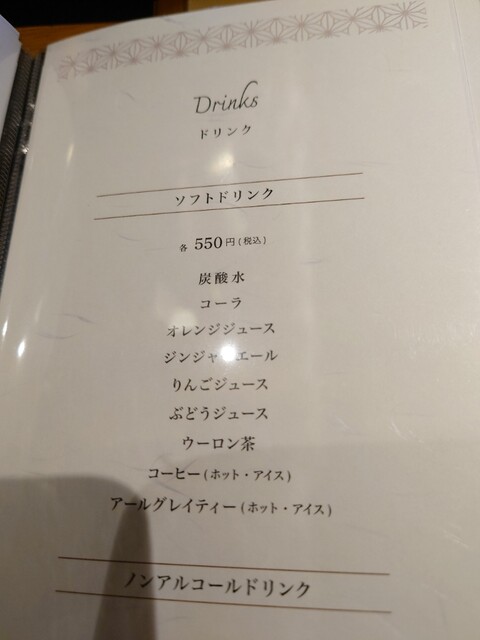 Drinks
ドリンク
ソフトドリンク
各 550円(税込)
炭酸水
コーラ
オレンジジュース
ジンジャーエール
りんごジュース
ぶどうジュース
ウーロン茶
コーヒー(ホット・アイス)
アールグレイティー(ホット・アイス)
ノンアルコールドリンク